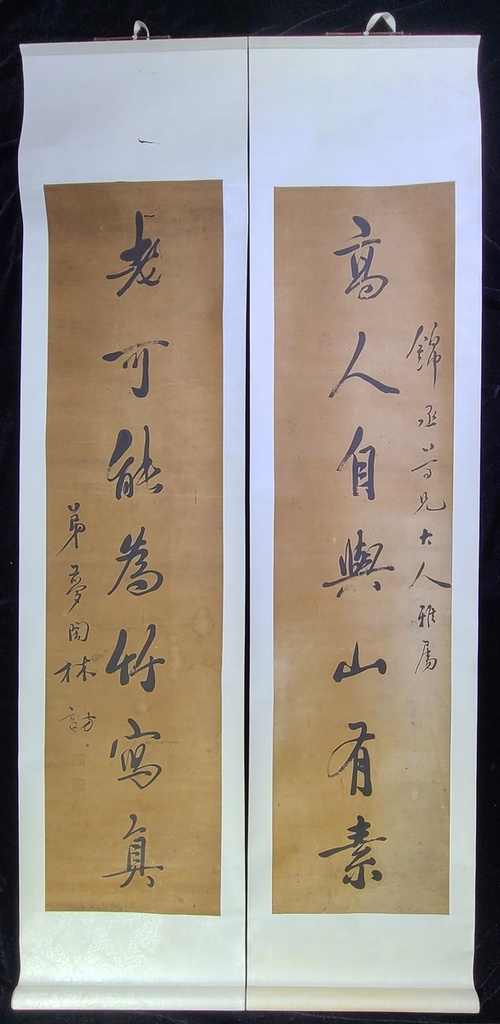 錦丞尊兄大人雅屬
高人自與山有素
老可能為竹寫真
弟夢林訪